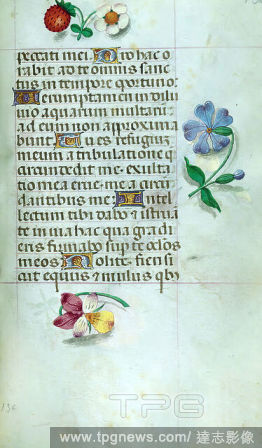 peccati mei Pro hac o
rabit ad te omnis sanc
tus in tempore oportuno:
Verumptamen in dilu
uio aquarum multarū:
ad eum non approxima
bunt Tu es refugiū
meum a tribulatione q̄
circumdedit me: exulta
tio mea erue me a circū
dantibus me: Intel
lectum tibi dabo et istruā
te in uia hac qua gradi
eris firmabo sup te oc̄los
meos Nolite fieri si
cut equus et mulus qb9
136
TPG
www.tpgnews.com / 達志影像